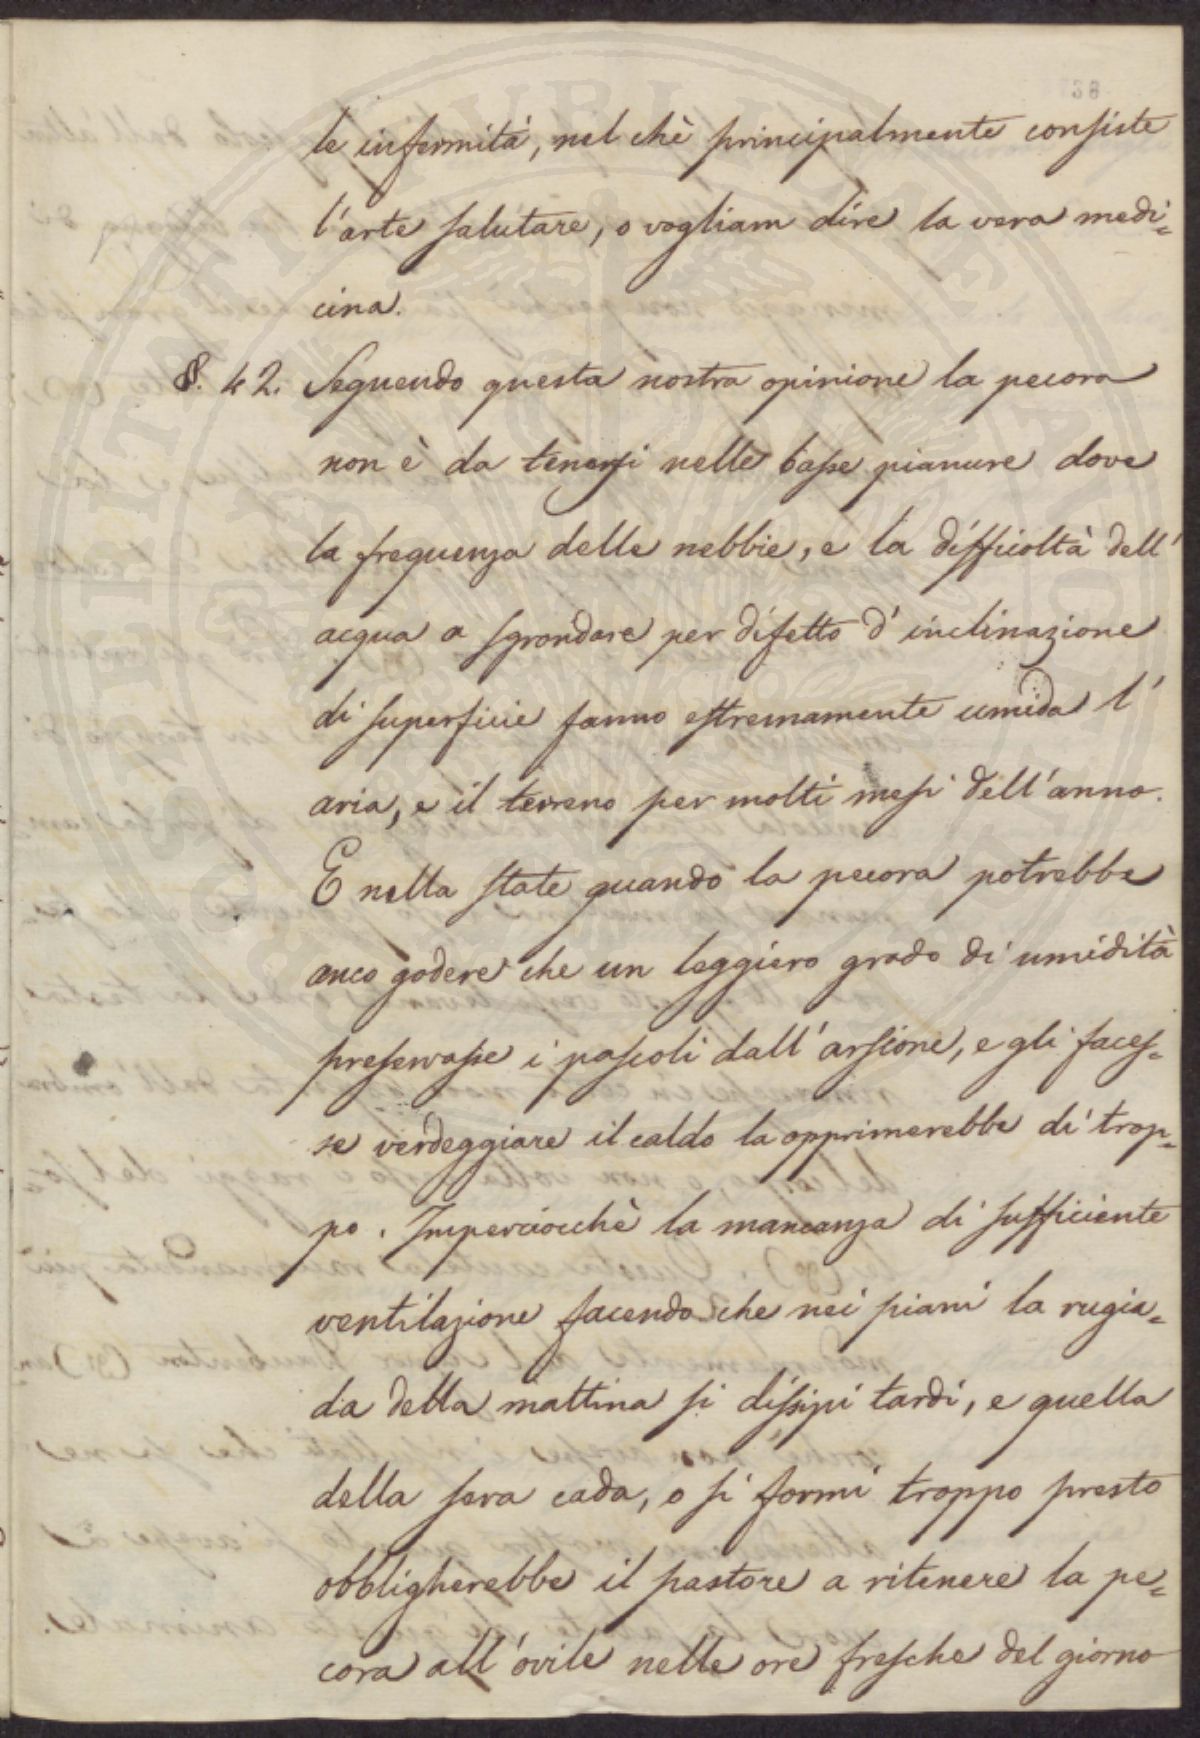 38
le infermità, nel chè principalmente consiste
l'arte salutare, o vogliam dire la vera medi=
cina.
§. 42. Seguendo questa nostra opinione la pecora
non è da tenersi nelle basse pianure dove
la frequenza delle nebbie, e la difficoltà dell'
acqua a sgrondare per difetto d'inclinazione
di superficie fanno estremamente umida l'
aria, e il terreno per molti mesi dell'anno.
E nella state quando la pecora potrebbe
anco godere che un leggiero grado di umidità
preservasse i pascoli dall'arsione, e gli faces=
se verdeggiare il caldo la opprimerebbe di trop=
po. Imperciocchè la mancanza di sufficiente
ventilazione facendo che nei piani la rugia=
da della mattina si dissipi tardi, e quella
della sera cada, o si formi troppo presto
obbligherebbe il pastore a ritenere la pe=
cora all'ovile nelle ore fresche del giorno